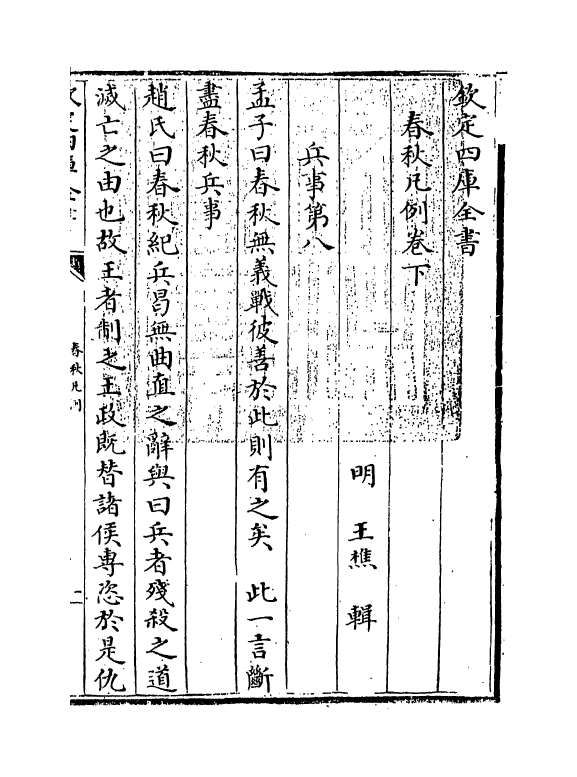 欽定四庫全書
春秋凡例卷下
明 王樵 輯
兵事第八
孟子曰春秋無義戰彼善於此則有之矣 此一言斷
盡春秋兵事
趙氏曰春秋紀兵曷無曲直之辭與曰兵者殘殺之道
滅亡之由也故王者制之王政既替諸侯專恣於是仇
春秋凡例